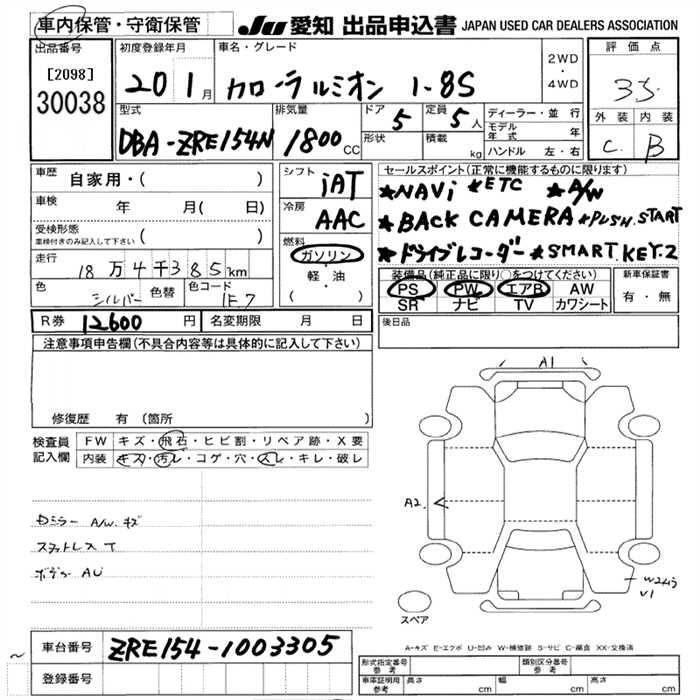 車内保管・守衛保管
JU 愛知 出品申込書 JAPAN USED CAR DEALERS ASSOCIATION
出品番号 初度登録年月 車名・グレード 評価点
[2098] 20 1月 カローラルミオン 1.8S 2WD・4WD 3.5
30038
型式 排気量 ドア 定員 ディーラー・並行 外装 内装
DBA-ZRE154N 1800cc 5 5人 モデル年式 年 C B
形状 積載 kg ハンドル 左・右
車歴 自家用・( ) シフト iAT セールスポイント(正常に機能するものに限ります)
車検 年 月( 日) 冷房 AAC ★NAVi ★ETC ★A/W
受検形態 ( ) ★BACK CAMERA ★PUSH.START
車検付きのみ記入して下さい
燃料 ガソリン ★ドライブレコーダー ★SMART.KEY.2
走行 18万4千385km 軽・油 装備品(純正品に限り○をつけてください) 新車保証書
色 シルバー 色替 色コード 1F7 ( ) PS PW エアB AW 有・無
SR ナビ TV カワシート
R券 12600円 名変期限 月 日 後日品
注意事項申告欄(不具合内容等は具体的に記入して下さい)
A1
修復歴 有(箇所
検査員 FW キズ・飛石・ヒビ割・リペア跡・X要
記入欄 内装 キズ・汚レ・コゲ・穴・スレ・キレ・破レ
A2
Dミラー A/W.キズ
スタットレスT
ボデー AU
V1
スペア
A-キズ E-エクボ U-凹み W-補修跡 S-サビ C-腐食 XX-交換済
車台番号 ZRE154-1003305
登録番号
形式指定番号 参考 類別区分番号 参考
車庫証明用 参考 長さ cm 幅 cm 高さ cm